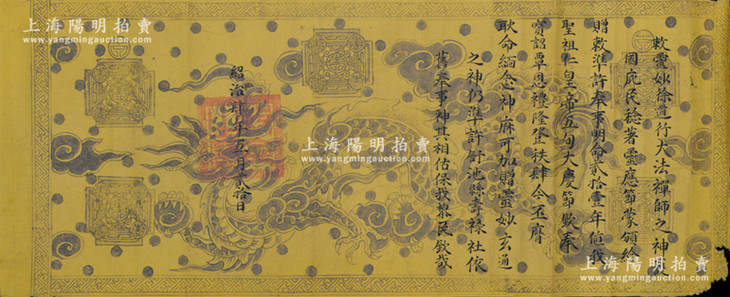 上海陽明拍賣
www.yangmingauction.com
上海陽明拍賣
www.yangmingauction.com
敕靈妙徐道行大法禪師之神
國庇民稔著靈應節蒙頒給
贈敕準許奉事明命貳拾壹年值我
聖祖仁皇帝五旬大慶節欽奉
寶詔覃恩禮隆登秩肆今丕膺
耿命緬念神庥可加贈靈妙玄通
之神仍準許舒池縣壽祿社依
舊奉事神其相佑保我黎民欽哉
紹治年五月貳拾日
上海陽明拍賣
www.yangmingauction.com
上海陽明拍賣
www.yangmingauction.com